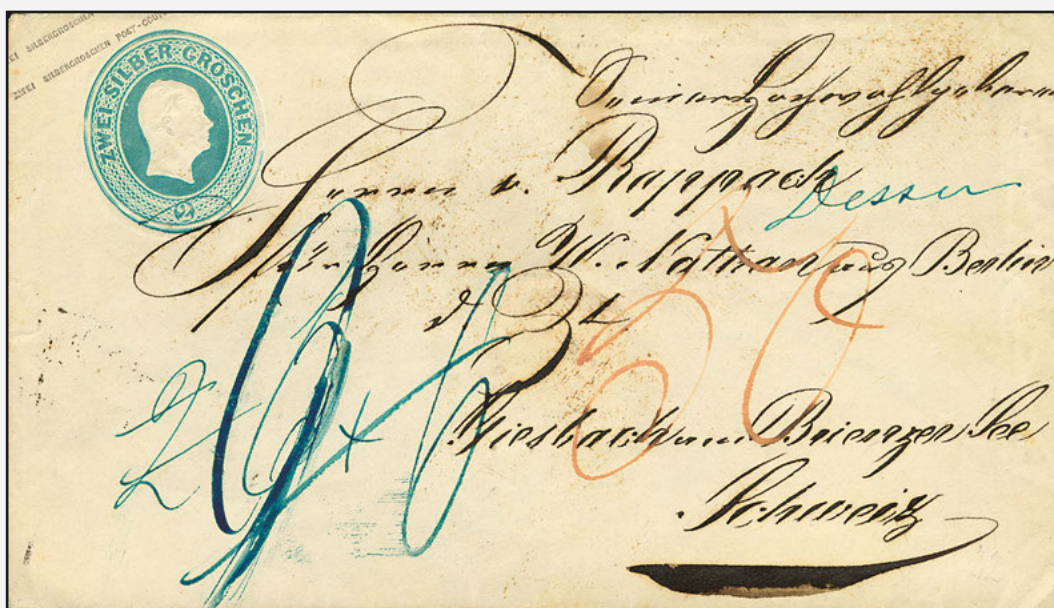 EI SILBERGROSCHEN
ZWEI SILBERGROSCHEN POST-COUV
ZWEI SILBER GROSCHEN
2
Seiner Hochwohlgeboren
Herrn v. Rappach
für Herrn W. Nathan aus Berlin
Giesbach am Brienzer See
Schweiz